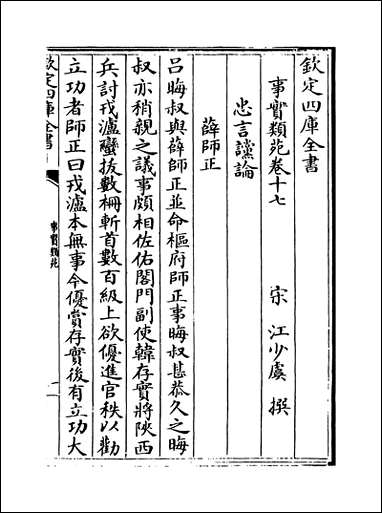 欽定四庫全書
事實類苑卷十七
宋 江少虞 撰
忠言讜論
薛師正
呂晦叔與薛師正並命樞府師正事晦叔甚恭久之晦
叔亦稍親之議事頗相佐佑閤門副使韓存寶將陝西
兵討戎瀘蠻拔數柵斬首數百級上欲優進官秩以勸
立功者師正曰戎瀘本無事今優賞存寶後有立功大
欽定四庫全書
事實類苑
一